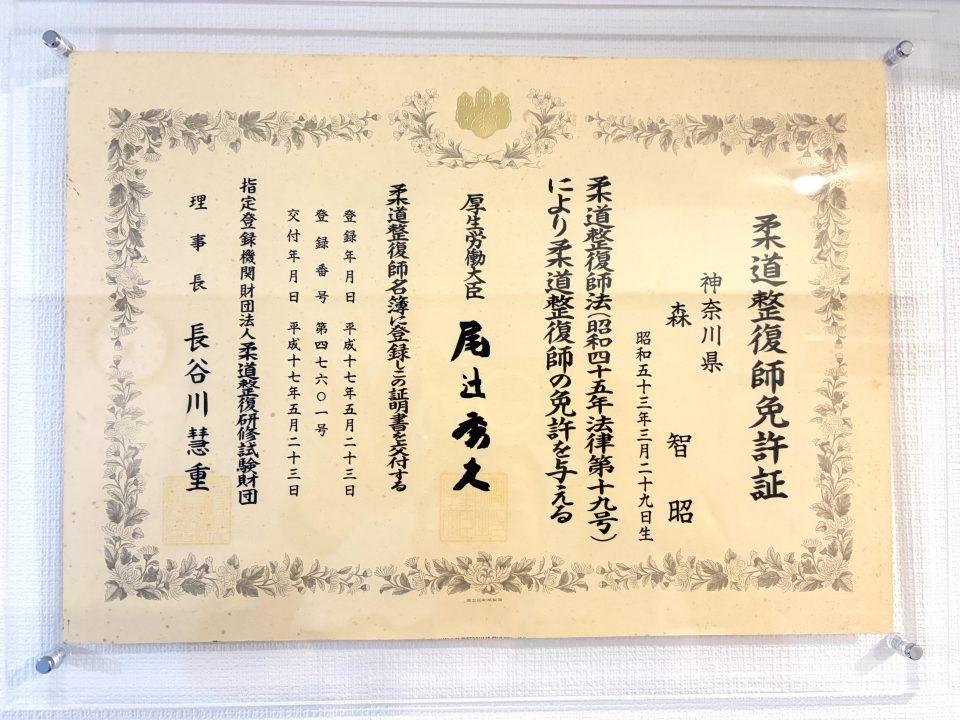 柔道整復師免許証
神奈川県
森 智昭
昭和五十三年三月二十九日生
柔道整復師法(昭和四十五年法律第十九号)
により柔道整復師の免許を与える
厚生労働大臣 尾辻秀久
柔道整復師名簿に登録しこの証明書を交付する
登録年月日 平成十七年五月二十三日
登録番号 第四七六〇一号
交付年月日 平成十七年五月二十三日
指定登録機関財団法人柔道整復研修試験財団
理事長 長谷川慧重